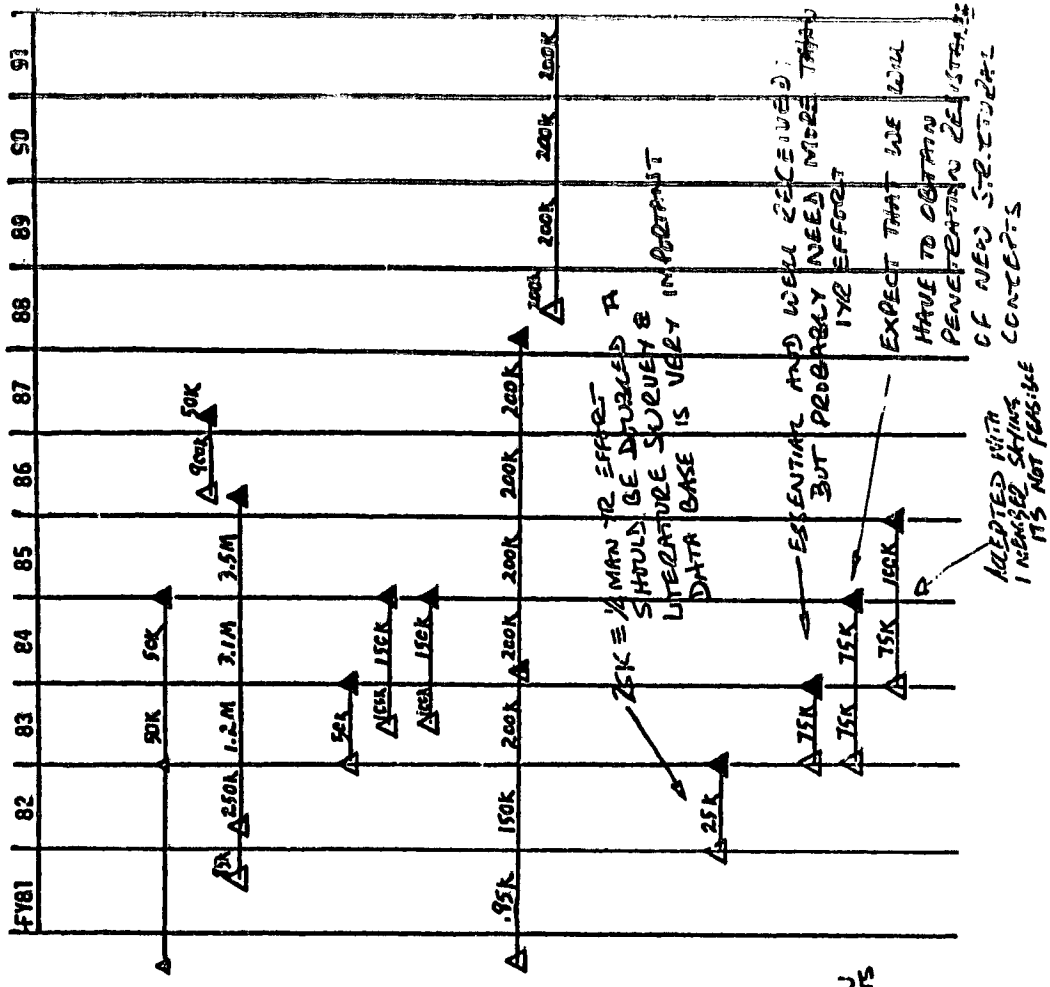 FY81 82 83 84 85 86 87 88 89 90 91
50K 50K
250K 1.2M 3.1M 3.5M
900K 50K
50K
150K
150K
.95K 150K 200K 200K 200K 200K 200K
200K 200K 200K 200K
25K
25K ≡ 1/2 MAN YR EFFORT
SHOULD BE DOUBLED
LITERATURE SURVEY &
DATA BASE IS VERY IMPORTANT
75K
ESSENTIAL AND WELL RECEIVED;
BUT PROBABLY NEED MORE THAN
1YR EFFORT
75K 75K
EXPECT THAT WE WILL
HAVE TO OBTAIN
PENETRATION RESISTANCE
OF NEW STRUCTURAL
CONCEPTS
75K 150K
ACCEPTED WITH
1 MEMBER SAYING
ITS NOT FEASIBLE